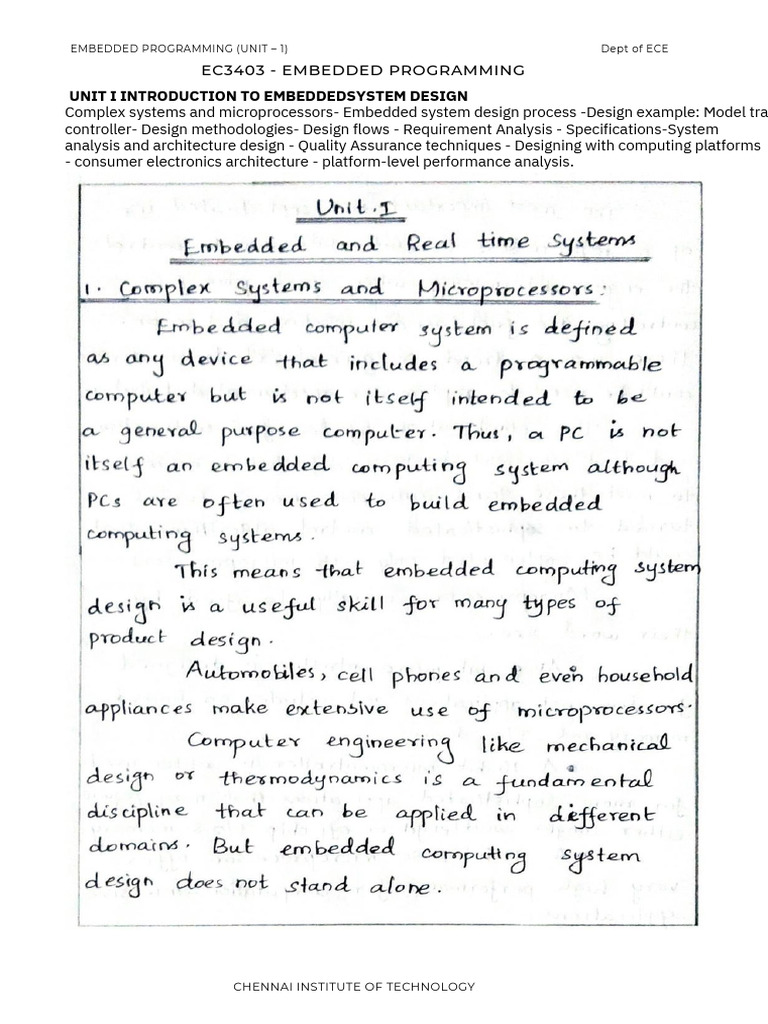 EMBEDDED PROGRAMMING (UNIT – 1) Dept of ECE
EC3403 - EMBEDDED PROGRAMMING
UNIT I INTRODUCTION TO EMBEDDEDSYSTEM DESIGN
Complex systems and microprocessors- Embedded system design process -Design example: Model tra
controller- Design methodologies- Design flows - Requirement Analysis - Specifications-System
analysis and architecture design - Quality Assurance techniques - Designing with computing platforms
- consumer electronics architecture - platform-level performance analysis.
Unit.I
Embedded and Real time Systems
1. Complex Systems and Microprocessors:
Embedded computer system is defined
as any device that includes a programmable
computer but is not itself intended to be
a general purpose computer. Thus, a PC is not
itself an embedded computing system although
PCs are often used to build embedded
computing systems.
This means that embedded computing system
design is a useful skill for many types of
product design.
Automobiles, cell phones and even household
appliances make extensive use of microprocessors.
Computer engineering like mechanical
design or thermodynamics is a fundamental
discipline that can be applied in different
domains. But embedded computing system
design does not stand alone.
CHENNAI INSTITUTE OF TECHNOLOGY